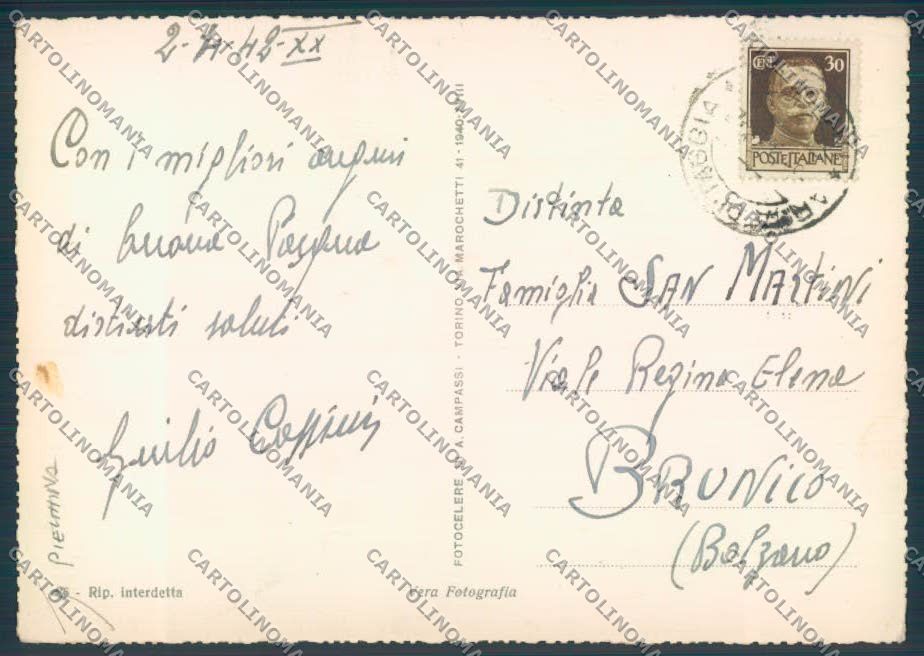 2-4-42-XX
Con i migliori auguri
di buona Pasqua
distinti saluti
Giulio Cassini
PIEMINA
Rip. interdetta
FOTOCELERE DI A. CAMPASSI - TORINO, VIA MAROCHETTI 41 - 1940-XVIII
Vera Fotografia
CENT 30
POSTE ITALIANE
TAGGIA
Distinta
Famiglia SAN MARTINI
Viale Regina Elena
BRUNICO
(Bolzano)
CARTOLINOMANIA